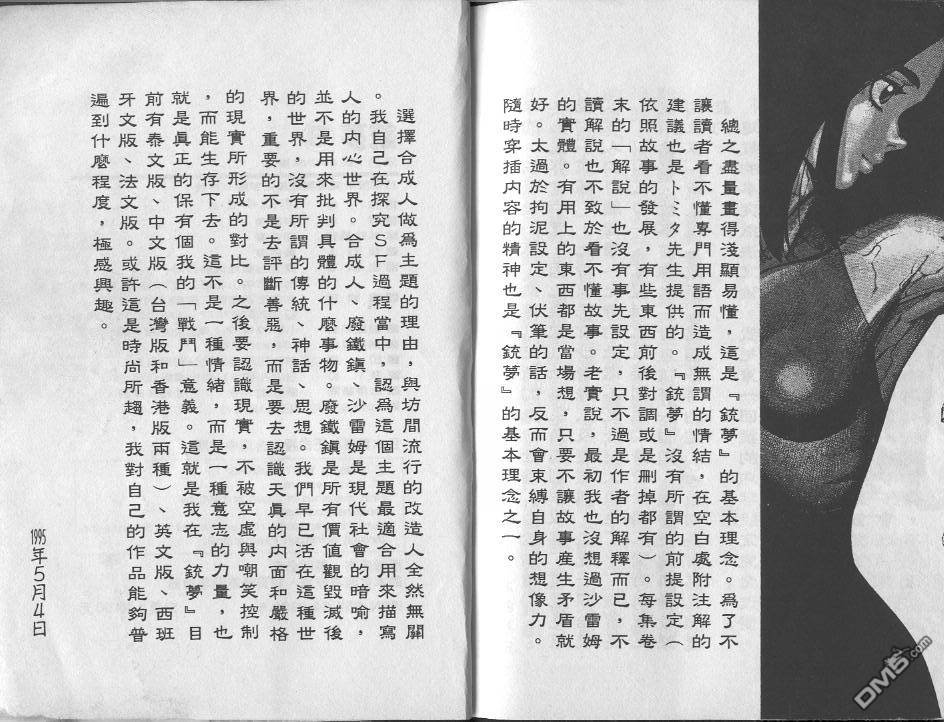 總之盡量畫得淺顯易懂，這是『銃夢』的基本理念。為了不
讓讀者看不懂專門用語而造成無謂的情結，在空白處附注解的
建議也是トミタ先生提供的。『銃夢』沒有所謂的前提設定（
依照故事的發展，有些東西前後對調或是刪掉都有）。每集卷
末的「解說」也沒有事先設定，只不過是作者的解釋而已，不
讀解說也不致於看不懂故事。老實說，最初我也沒想過沙雷姆
的實體。有用上的東西都是當場想，只要不讓故事產生矛盾就
好。太過於拘泥設定、伏筆的話，反而會束縛自身的想像力。
隨時穿插內容的精神也是『銃夢』的基本理念之一。
選擇合成人做為主題的理由，與坊間流行的改造人全然無關
。我自己在探究SF過程當中，認為這個主題最適合用來描寫
人的內心世界。合成人、廢鐵鎮、沙雷姆是現代社會的暗喻，
並不是用來批判具體的什麼事物。廢鐵鎮是所有價值觀毀滅後
的世界，沒有所謂的傳統、神話、思想。我們早已活在這種世
界，重要的不是去評斷善惡，而是要去認識天真的內面和嚴格
的現實所形成的對比。之後要認識現實，不被空虛與嘲笑控制
，而能生存下去。這不是一種情緒，而是一種意志的力量，也
就是真正的保有個我的「戰鬥」意義。這就是我在『銃夢』目
前有泰文版、中文版（台灣版和香港版兩種）、英文版、西班
牙文版、法文版。或許這是時尚所趨，我對自己的作品能夠普
遍到什麼程度，極感興趣。
1995年5月4日
DM5.com